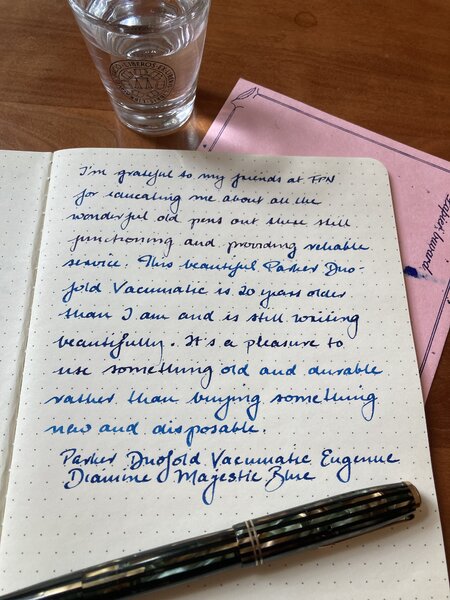 I'm grateful to my friends at FPN
for educating me about all the
wonderful old pens out there still
functioning and providing reliable
service. This beautiful Parker Duo-
fold Vacumatic is 20 years older
than I am and is still writing
beautifully. It's a pleasure to
use something old and durable
rather than buying something
new and disposable.
Parker Duofold Vacumatic Eugenue
Diamine Majestic Blue
LIBEROS EX